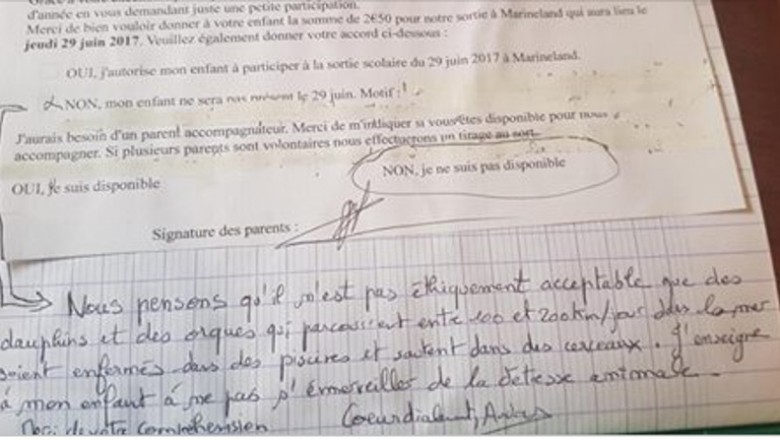 d'année en vous demandant juste une petite participation.
Merci de bien vouloir donner à votre enfant la somme de 2€50 pour notre sortie à Marineland qui aura lieu le
jeudi 29 juin 2017. Veuillez également donner votre accord ci-dessous :
OUI, j'autorise mon enfant à participer à la sortie scolaire du 29 juin 2017 à Marineland.
NON, mon enfant ne sera pas présent le 29 juin. Motif :
J'aurais besoin d'un parent accompagnateur. Merci de m'indiquer si vous êtes disponible pour nous
accompagner. Si plusieurs parents sont volontaires nous effectuerons un tirage au sort.
OUI, je suis disponible
NON, je ne suis pas disponible
Signature des parents :
Nous pensons qu'il n'est pas éthiquement acceptable que des
dauphins et des orques qui parcourent entre 100 et 200km/jour dans la mer
soient enfermés dans des piscines et sautent dans des cerceaux. J'enseigne
à mon enfant à ne pas s'émerveiller de la détresse animale.
Merci de votre compréhension Coeurdialement,